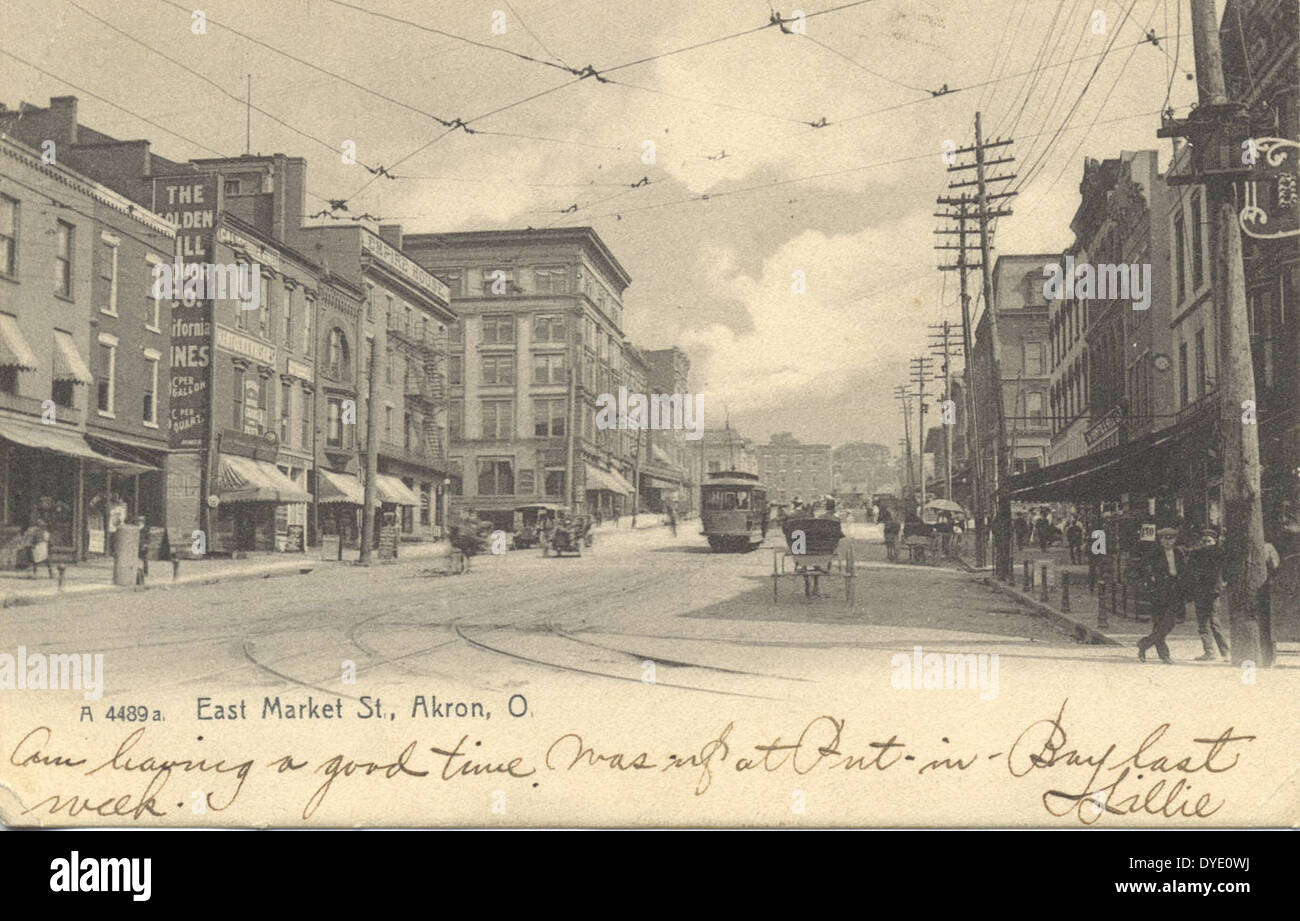 THE
GOLDEN
HILL
CO.
California
WINES
PER
GALLON
PER
QUART.
EMPIRE HOUSE
A 4489 a. East Market St., Akron, O.
Am having a good time. Was up at Put-in-Bay last
week. Lillie
alamy
Image ID: DYE0WJ
www.alamy.com